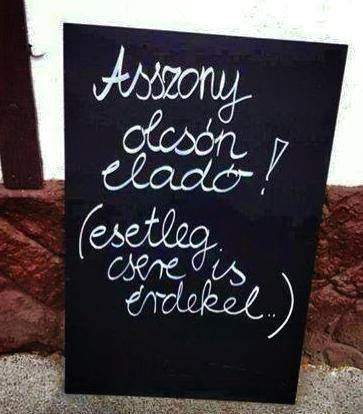 Asszony
olcsón
eladó!
(esetleg
csere is
érdekel..)